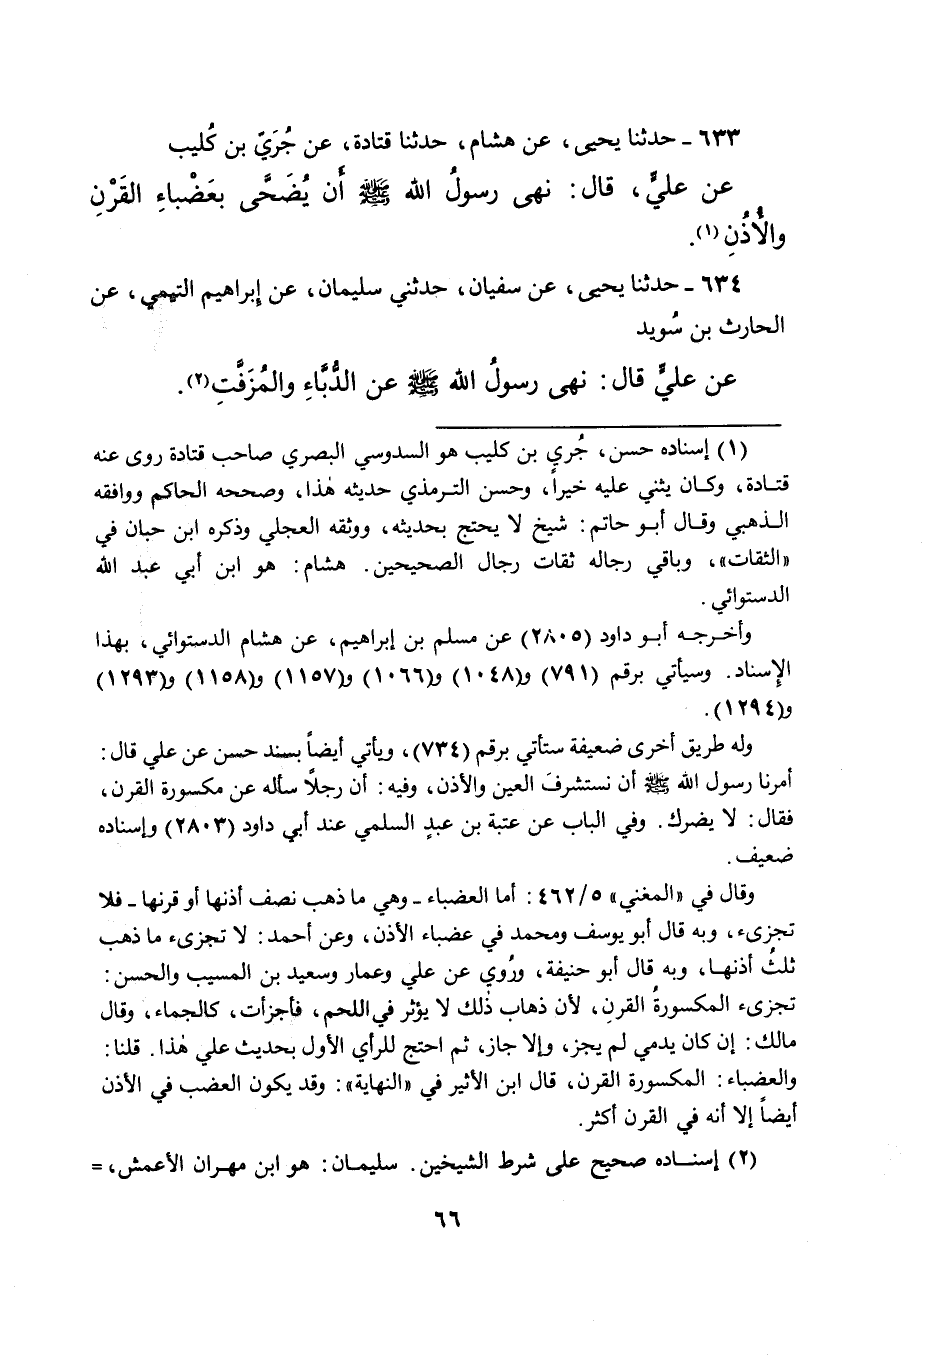 ٦٣٣ ـ حدثنا يحيى، عن هشام، حدثنا قتادة، عن جُرَيّ بن كُليب
عن عليٍّ، قال: نهى رسولُ الله ﷺ أَن يُضَحَّى بعَضْباءِ القَرْنِ
والأُذُنِ(١).
٦٣٤ ـ حدثنا يحيى، عن سفيان، حدثني سليمان، عن إبراهيم التيمي، عن
الحارث بن سُويد
عن عليٍّ قال: نهى رسولُ الله ﷺ عن الدُّبَّاءِ والمُزَفَّتِ(٢).
(١) إسناده حسن، جُري بن كليب هو السدوسي البصري صاحب قتادة روى عنه
قتادة، وكان يثني عليه خيراً، وحسن الترمذي حديثه هٰذا، وصححه الحاكم ووافقه
الذهبي وقال أبو حاتم: شيخ لا يحتج بحديثه، ووثقه العجلي وذكره ابن حبان في
«الثقات»، وباقي رجاله ثقات رجال الصحيحين. هشام: هو ابن أبي عبد الله
الدستوائي.
وأخرجه أبو داود (٢٨٠٥) عن مسلم بن إبراهيم، عن هشام الدستوائي، بهذا
الإسناد. وسيأتي برقم (٧٩١) و(١٠٤٨) و(١٠٦٦) و(١١٥٧) و(١١٥٨) و(١٢٩٣)
و(١٢٩٤).
وله طريق أخرى ضعيفة ستأتي برقم (٧٣٤)، ويأتي أيضاً بسند حسن عن علي قال:
أمرنا رسول الله ﷺ أن نستشرفَ العين والأذن، وفيه: أن رجلًا سأله عن مكسورة القرن،
فقال: لا يضرك. وفي الباب عن عتبة بن عبدٍ السلمي عند أبي داود (٢٨٠٣) وإسناده
ضعيف.
وقال في «المغني» ٤٦٢/٥: أما العضباء ـ وهي ما ذهب نصف أذنها أو قرنها ـ فلا
تجزىء، وبه قال أبو يوسف ومحمد في عضباء الأذن، وعن أحمد: لا تجزىء ما ذهب
ثلثُ أذنها، وبه قال أبو حنيفة، ورُوي عن علي وعمار وسعيد بن المسيب والحسن:
تجزىء المكسورةُ القرنِ، لأن ذهاب ذٰلك لا يؤثر في اللحم، فأجزأت، كالجماء، وقال
مالك: إن كان يدمي لم يجز، وإلا جاز، ثم احتج للرأي الأول بحديث علي هٰذا. قلنا:
والعضباء: المكسورة القرن، قال ابن الأثير في «النهاية»: وقد يكون العضب في الأذن
أيضاً إلا أنه في القرن أكثر.
(٢) إسناده صحيح على شرط الشيخين. سليمان: هو ابن مهران الأعمش، =
٦٦